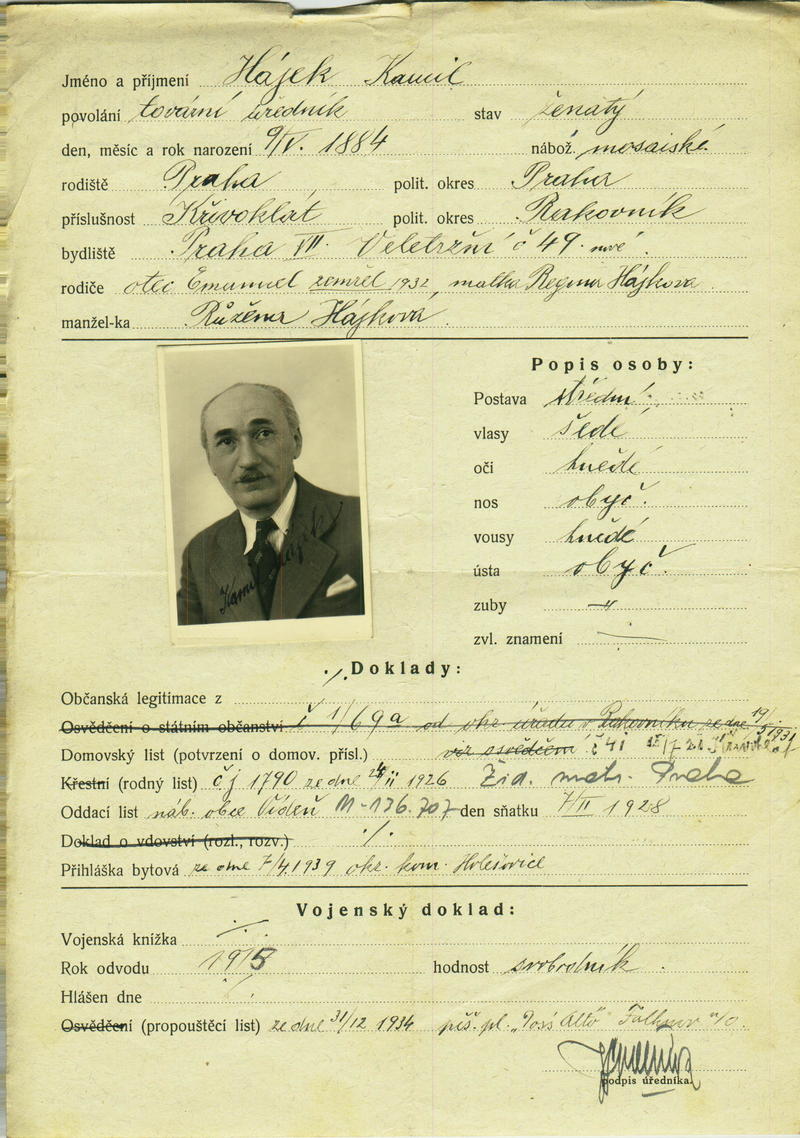 Jméno a příjmení Hájek Kamil
povolání tovární úředník stav ženatý
den, měsíc a rok narození 9/V. 1884 nábož. mosaiské
rodiště Praha polit. okres Praha
příslušnost Křivoklát polit. okres Rakovník
bydliště Praha VII. Veletržní č 49 nové.
rodiče otec Emanuel zemřel 1932, matka Regina Hájkova
manžel-ka Růžena Hájkova
Popis osoby:
Postava střední
vlasy šedé
oči hnědé
nos obyč.
vousy hnědé
ústa obyč.
zuby
zvl. znamení
Kamil Hájek
Doklady:
Občanská legitimace z
Osvědčení o státním občanství č 1/69a od okr. úřadu v Rakovníku ze dne 19/
Domovský list (potvrzení o domov. přísl.) viz osvědčení č 41
Křestní (rodný list) čj 1790 ze dne 24/II 1926 Žid. matr. Praha
Oddací list náb. obce Vídeň M-136.707 den sňatku 7/II 1928
Doklad o vdovství (rozl., rozv.) ./.
Přihláška bytová ze dne 7/4.1939 okr. kom. Holešovice
Vojenský doklad:
Vojenská knížka
Rok odvodu 1915 hodnost svobodník.
Hlášen dne
Osvědčení (propouštěcí list) ze dne 31/12 1934 pěš. pl.
podpis úředníka.